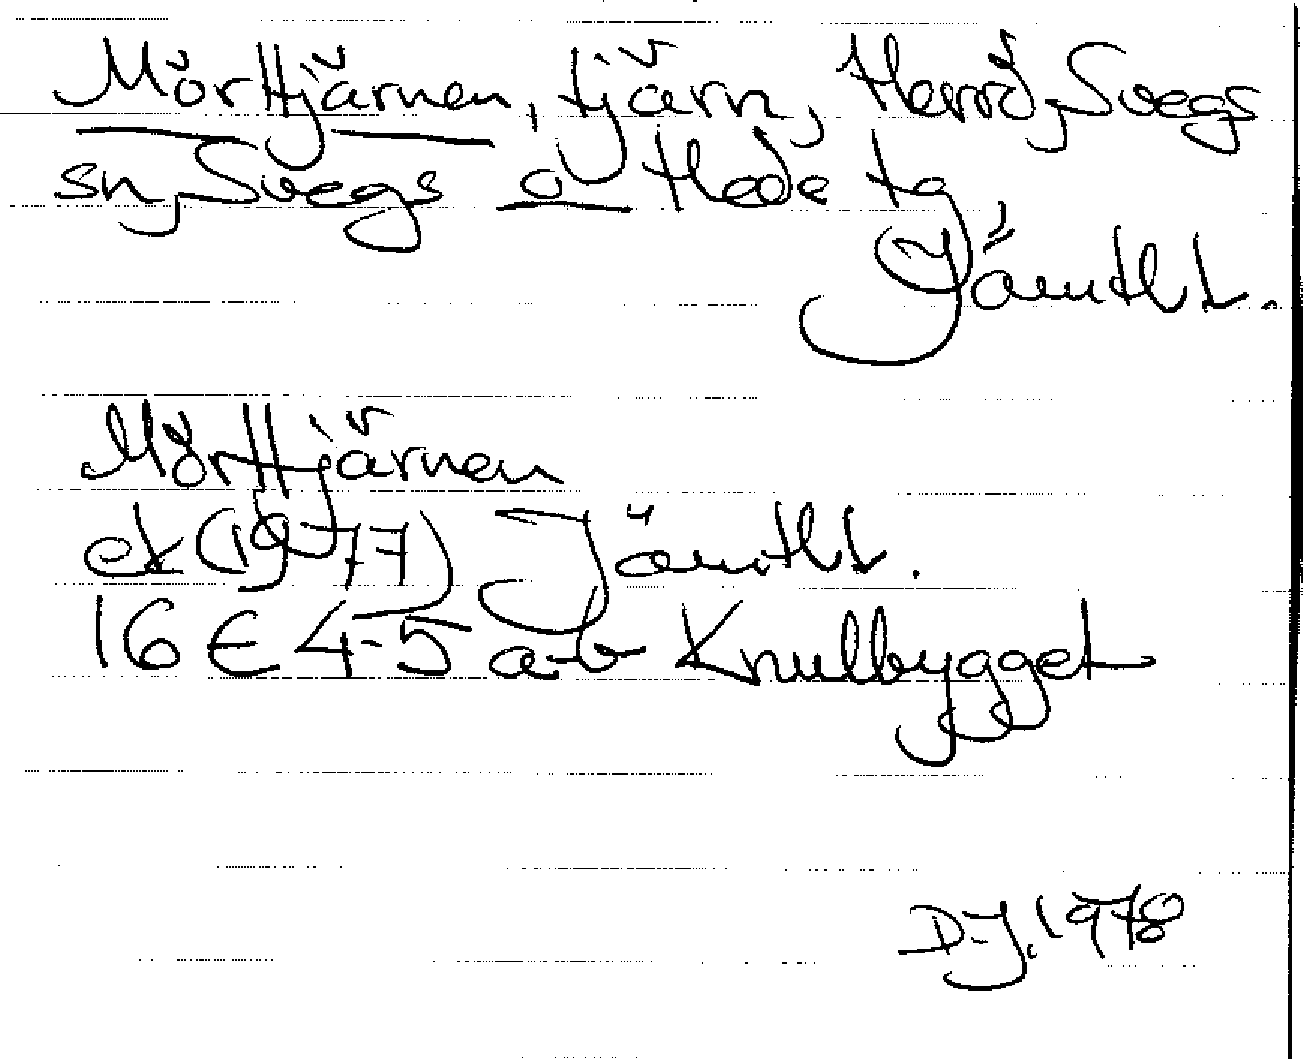 Mörttjärnen, tjärn, Herrö, Svegs
sn, Svegs o Hede tg
Jämtl l.
Mörttjärnen
ek (1977) Jämtl l.
16 E 4-5 a-b Knullbygget
D-J. 1978